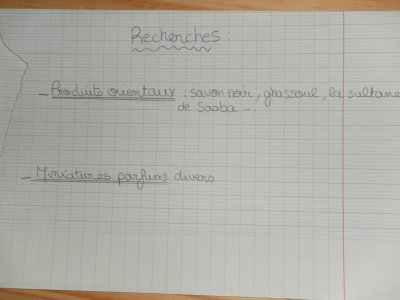 Recherches :
- Produits orientaux : savon noir, ghassoul, la sultane
de Saaba ...
- Miniatures parfums divers